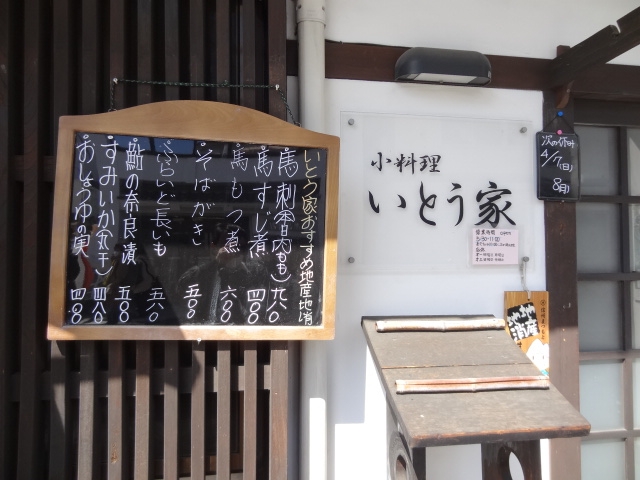 いとう家おすすめ地産地消
・馬刺(信州内もも)九八〇
・馬すじ煮 四〇〇
・馬もつ煮 六〇〇
・そばがき 五〇〇
・ふらいど長いも 五八〇
・鮎の奈良漬 五〇〇
・すみいか(丸干) 四八〇
・おしょうゆの実 四〇〇
小料理
いとう家
次の休み
4/7(日)
8(月)
営業時間